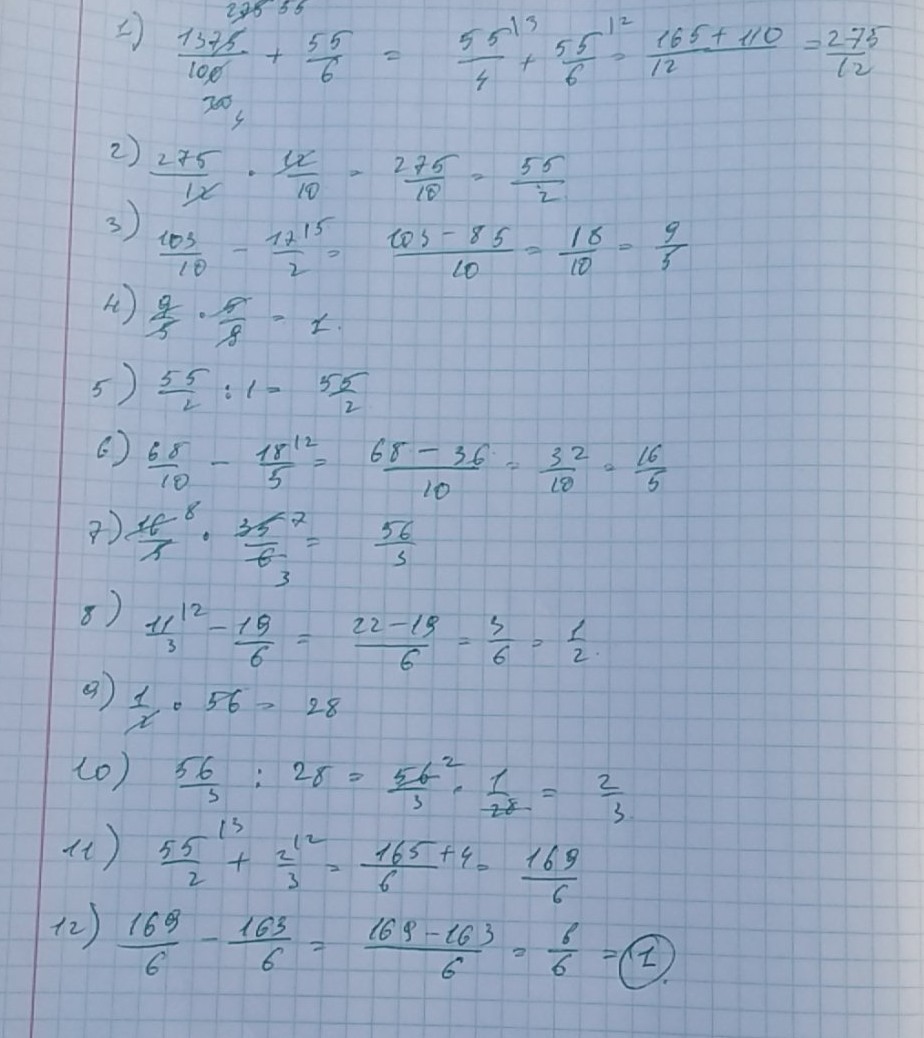 275 55
1) 1375/100 + 55/6 = 55/4 + 55/6 = (165 + 110)/12 = 275/12
4
2) 275/12 · 12/10 = 275/10 = 55/2
3) 103/10 - 17/2 = (103 - 85)/10 = 18/10 = 9/5
4) 9/5 · 5/9 = 1.
5) 55/2 : 1 = 55/2
6) 68/10 - 18/5 = (68 - 36)/10 = 32/10 = 16/5
7) 16/5 · 35/6 = 56/3
8) 11/3 - 19/6 = (22 - 19)/6 = 3/6 = 1/2.
9) 1/2 · 56 = 28
10) 56/3 : 28 = 56/3 · 1/28 = 2/3.
11) 55/2 + 2/3 = (165 + 4)/6 = 169/6
12) 169/6 - 163/6 = (169 - 163)/6 = 6/6 = 1.